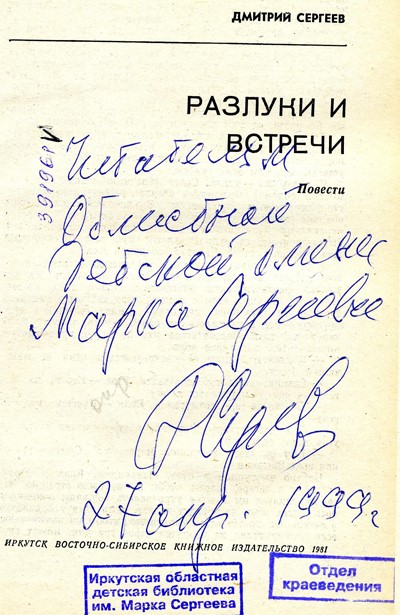 ДМИТРИЙ СЕРГЕЕВ
РАЗЛУКИ И
ВСТРЕЧИ
Повести
Читателям
Областной
Детской имени
Марка Сергеева
27 апр. 1999 г
ИРКУТСК ВОСТОЧНО-СИБИРСКОЕ КНИЖНОЕ ИЗДАТЕЛЬСТВО 1981
Иркутская областная
детская библиотека
им. Марка Сергеева
Отдел
краеведения